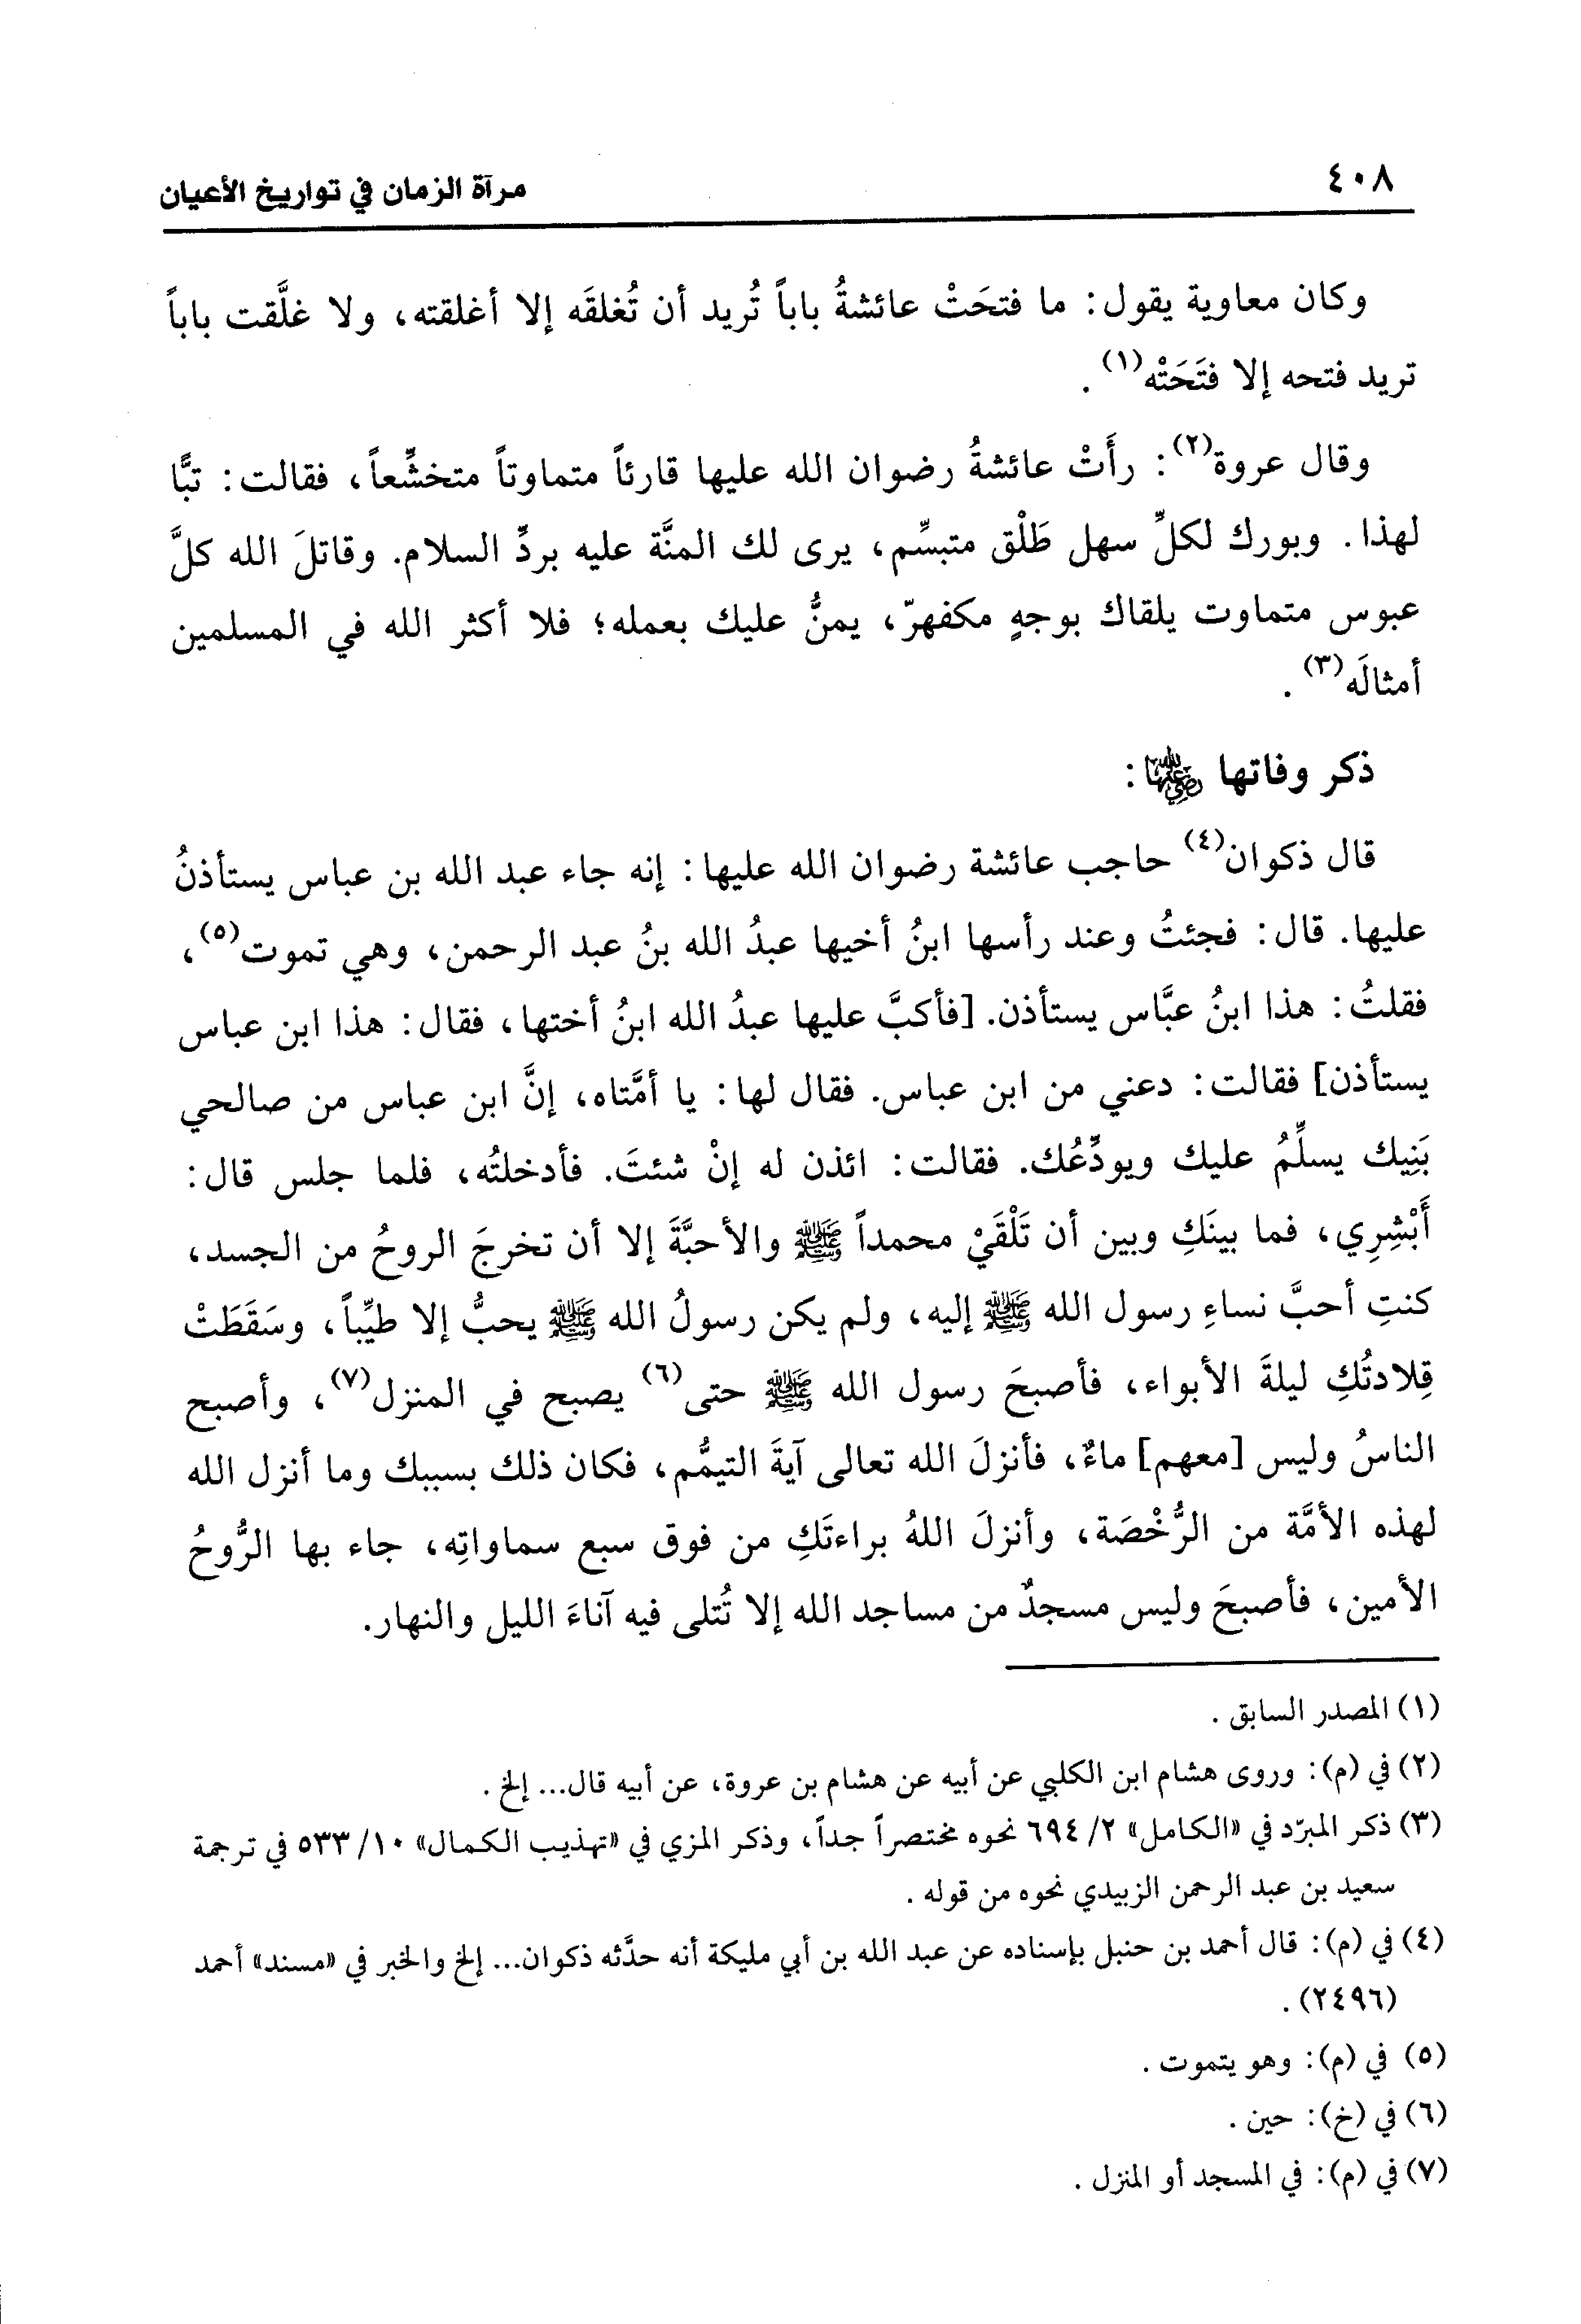 ٤٠٨
مرآة الزمان في تواريخ الأعيان
وكان معاوية يقول: ما فتحَتْ عائشةُ باباً تُريد أن تُغلقَه إلا أغلقته، ولا غلَّقت باباً
تريد فتحه إلا فتَحَتْه(١).
وقال عروة(٢): رأَتْ عائشةُ رضوان الله عليها قارئاً متماوتاً متخشِّعاً، فقالت: تبًّا
لهذا. وبورك لكلِّ سهل طَلْق متبسِّم، يرى لك المنَّة عليه بردِّ السلام. وقاتلَ الله كلَّ
عبوس متماوت يلقاك بوجهٍ مكفهرّ، يمنُّ عليك بعمله؛ فلا أكثر الله في المسلمين
أمثالَه(٣).
ذكر وفاتها رضي الله عنها:
قال ذكوان(٤) حاجب عائشة رضوان الله عليها: إنه جاء عبد الله بن عباس يستأذنُ
عليها. قال: فجئتُ وعند رأسها ابنُ أخيها عبدُ الله بنُ عبد الرحمن، وهي تموت(٥)،
فقلتُ: هذا ابنُ عبَّاس يستأذن. [فأكبَّ عليها عبدُ الله ابنُ أختها، فقال: هذا ابن عباس
يستأذن] فقالت: دعني من ابن عباس. فقال لها: يا أمَّتاه، إنَّ ابن عباس من صالحي
بَنِيك يسلِّمُ عليك ويودِّعُك. فقالت: ائذن له إنْ شئتَ. فأدخلتُه، فلما جلس قال:
أَبْشِرِي، فما بينَكِ وبين أن تَلْقَيْ محمداً ﷺ والأحبَّةَ إلا أن تخرجَ الروحُ من الجسد،
كنتِ أحبَّ نساءِ رسول الله ﷺ إليه، ولم يكن رسولُ الله ﷺ يحبُّ إلا طيِّباً، وسَقَطَتْ
قِلادتُكِ ليلةَ الأبواء، فأصبحَ رسول الله ﷺ حتى(٦) يصبح في المنزل(٧)، وأصبح
الناسُ وليس [معهم] ماءٌ، فأنزلَ الله تعالى آيةَ التيمُّم، فكان ذلك بسببك وما أنزل الله
لهذه الأمَّة من الرُّخْصَة، وأنزلَ اللهُ براءتَكِ من فوق سبع سماواتِه، جاء بها الرُّوحُ
الأمين، فأصبحَ وليس مسجدٌ من مساجد الله إلا تُتلى فيه آناءَ الليل والنهار.
(١) المصدر السابق.
(٢) في (م): وروى هشام ابن الكلبي عن أبيه عن هشام بن عروة، عن أبيه قال... إلخ.
(٣) ذكر المبرّد في «الكامل» ٢/ ٦٩٤ نحوه مختصراً جداً، وذكر المزي في «تهذيب الكمال» ١٠/ ٥٣٣ في ترجمة
سعيد بن عبد الرحمن الزبيدي نحوه من قوله.
(٤) في (م): قال أحمد بن حنبل بإسناده عن عبد الله بن أبي مليكة أنه حدَّثه ذكوان... إلخ والخبر في «مسند» أحمد
(٢٤٩٦).
(٥) في (م): وهو يتموت.
(٦) في (خ): حين.
(٧) في (م): في المسجد أو المنزل.